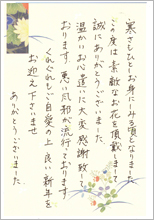 寒さもひとしお身にしみる頃となりました
この度は 素敵なお花を頂戴しまして
誠にありがとうございました
温かいお心遣いに大変感謝致して
おります 悪い風邪が流行しております
くれぐれもご自愛の上 良い新年を
お迎え下さいませ
ありがとうございました